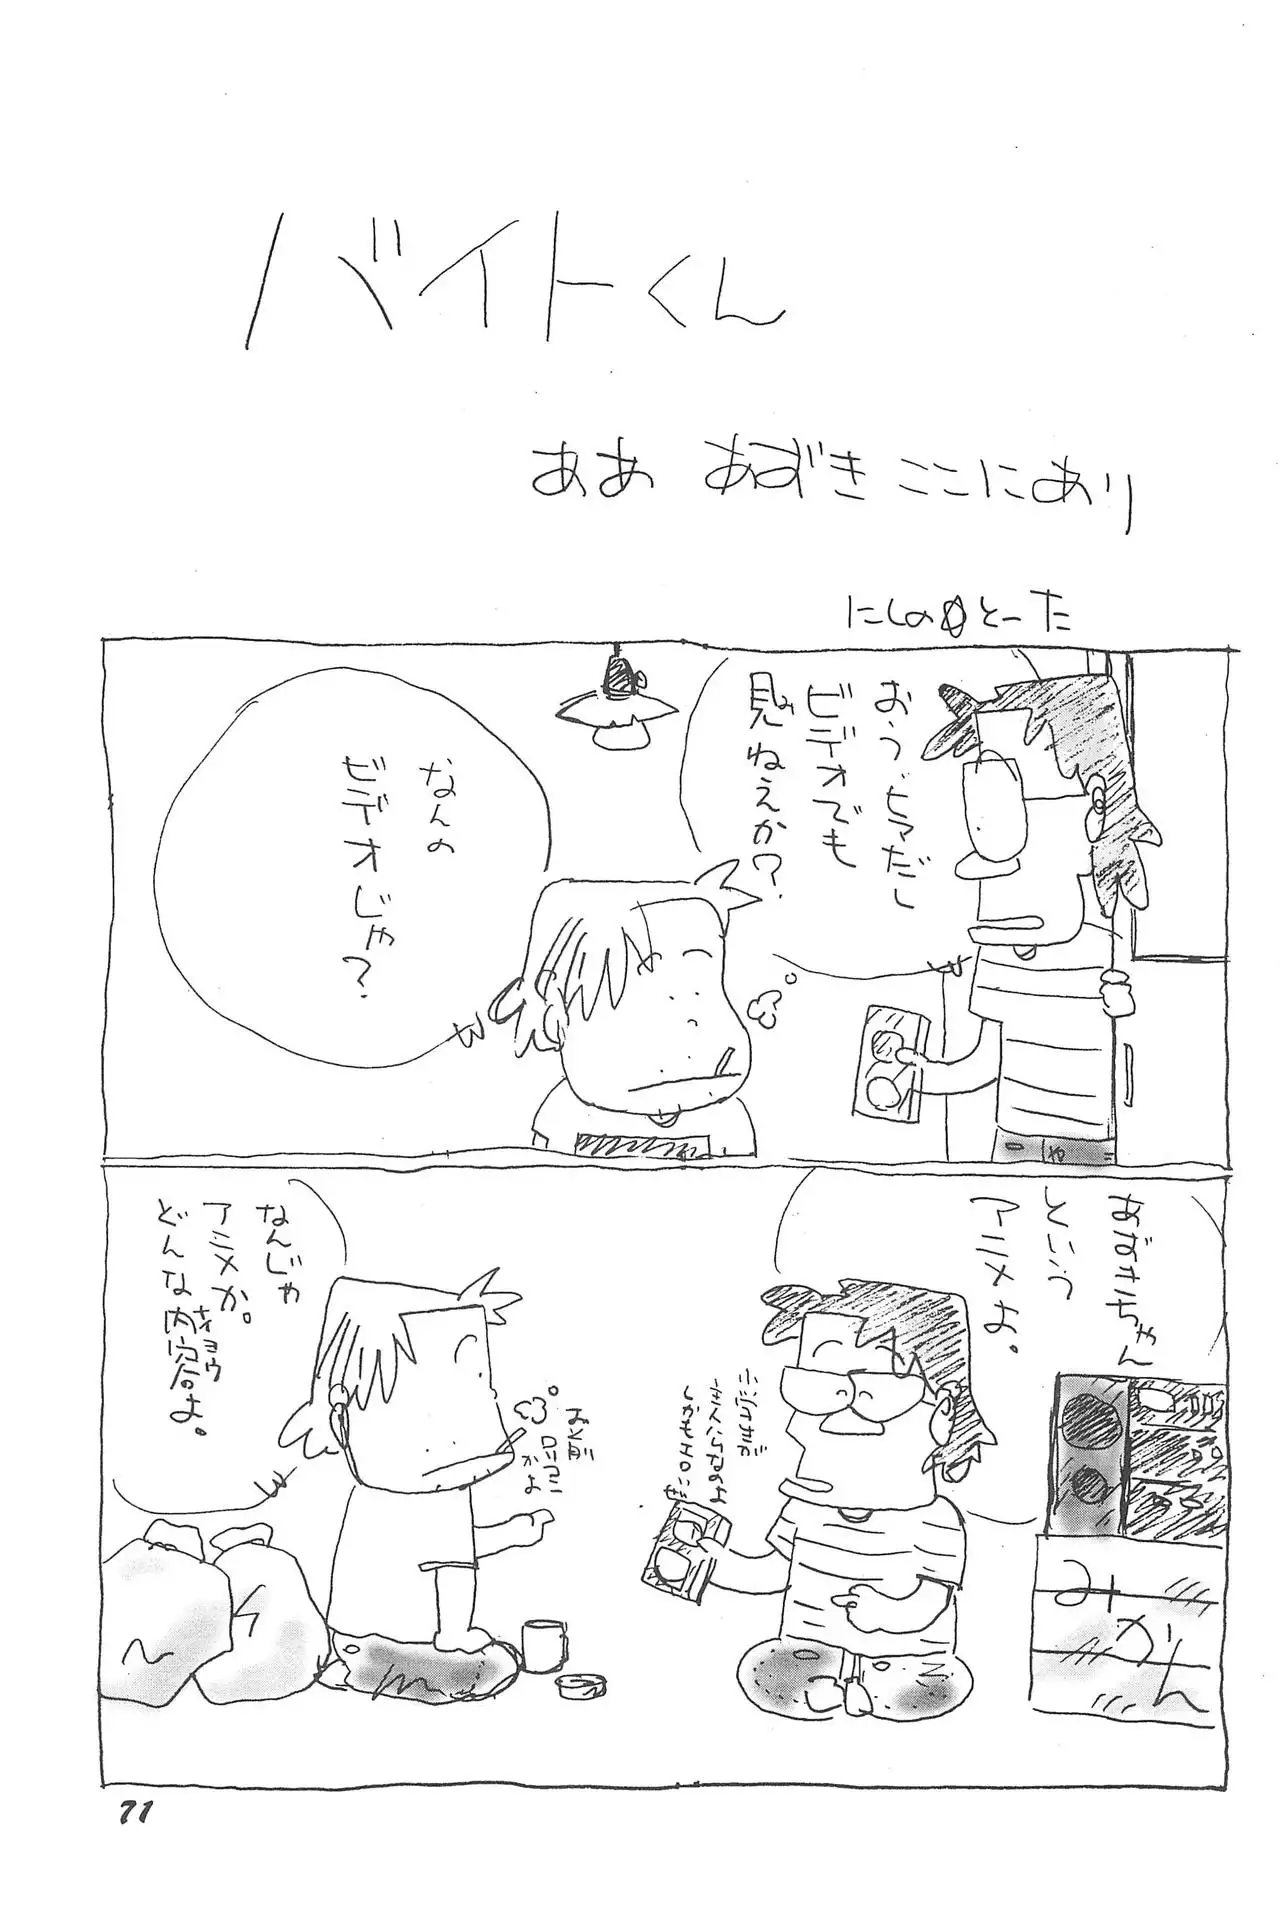 バイトくん
ああ あずき ここにあり
にしの とーた
おう、ヒマだし
ビデオでも
見ねえか?
なんの
ビデオじゃ?
あずきちゃん
という
アニメよ。
しかもエロいぜ
なんじゃ
アニメか。
どんな内容よ。
ナイヨウ
ロリコン
かよ
みかん
71